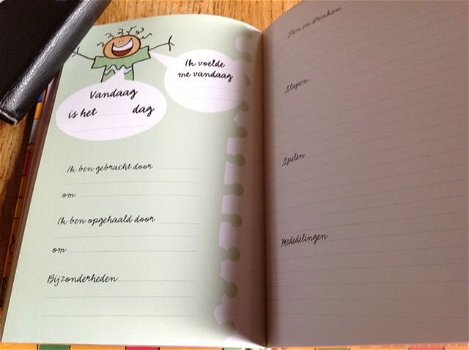 Ik voelde
me vandaag
Vandaag
is het dag
Ik ben gebracht door
om
Ik ben opgehaald door
om
Bijzonderheden
Eten en drinken
Slapen
Spelen
Mededelingen